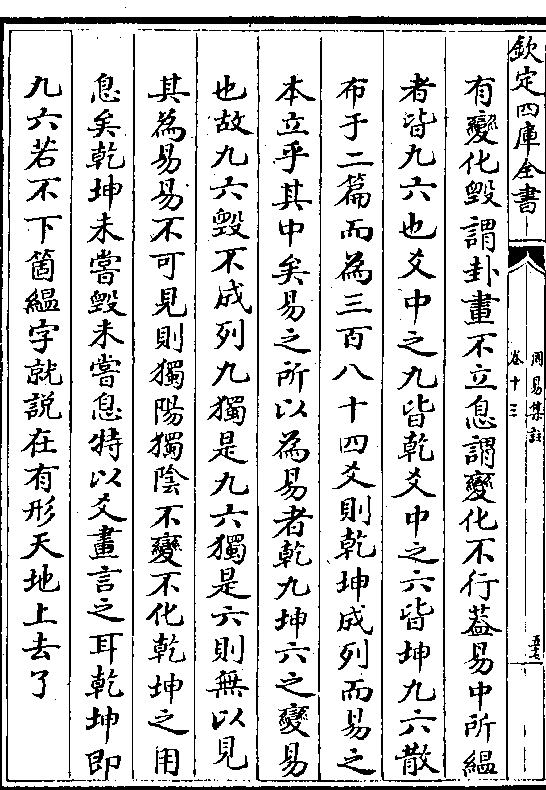 欽定四庫全書
周易集註
卷十三
有變化毀謂卦畫不立息謂變化不行葢易中所緼
者皆九六也爻中之九皆乾爻中之六皆坤九六散
布于二篇而為三百八十四爻則乾坤成列而易之
本立乎其中矣易之所以為易者乾九坤六之變易
也故九六毀不成列九獨是九六獨是六則無以見
其為易易不可見則獨陽獨陰不變不化乾坤之用
息矣乾坤未嘗毀未嘗息特以爻畫言之耳乾坤即
九六若不下箇緼字就説在有形天地上去了